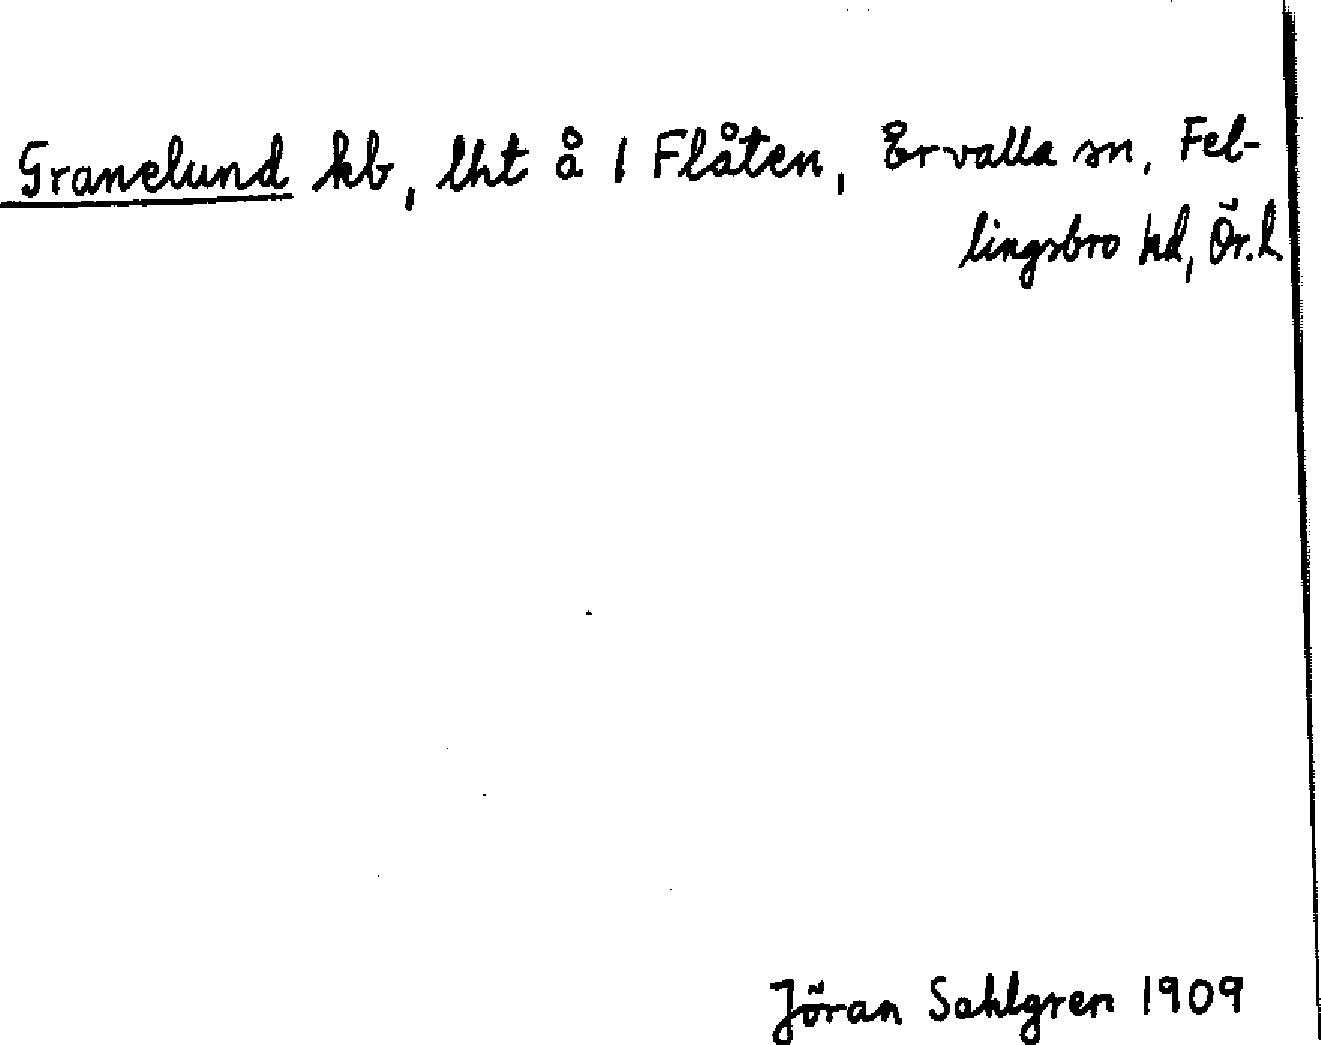 Granelund hb, lht å 1 Flåten, Ervalla sn, Fel-
lingsbro hd, Ör. l.
Jöran Sahlgren 1909